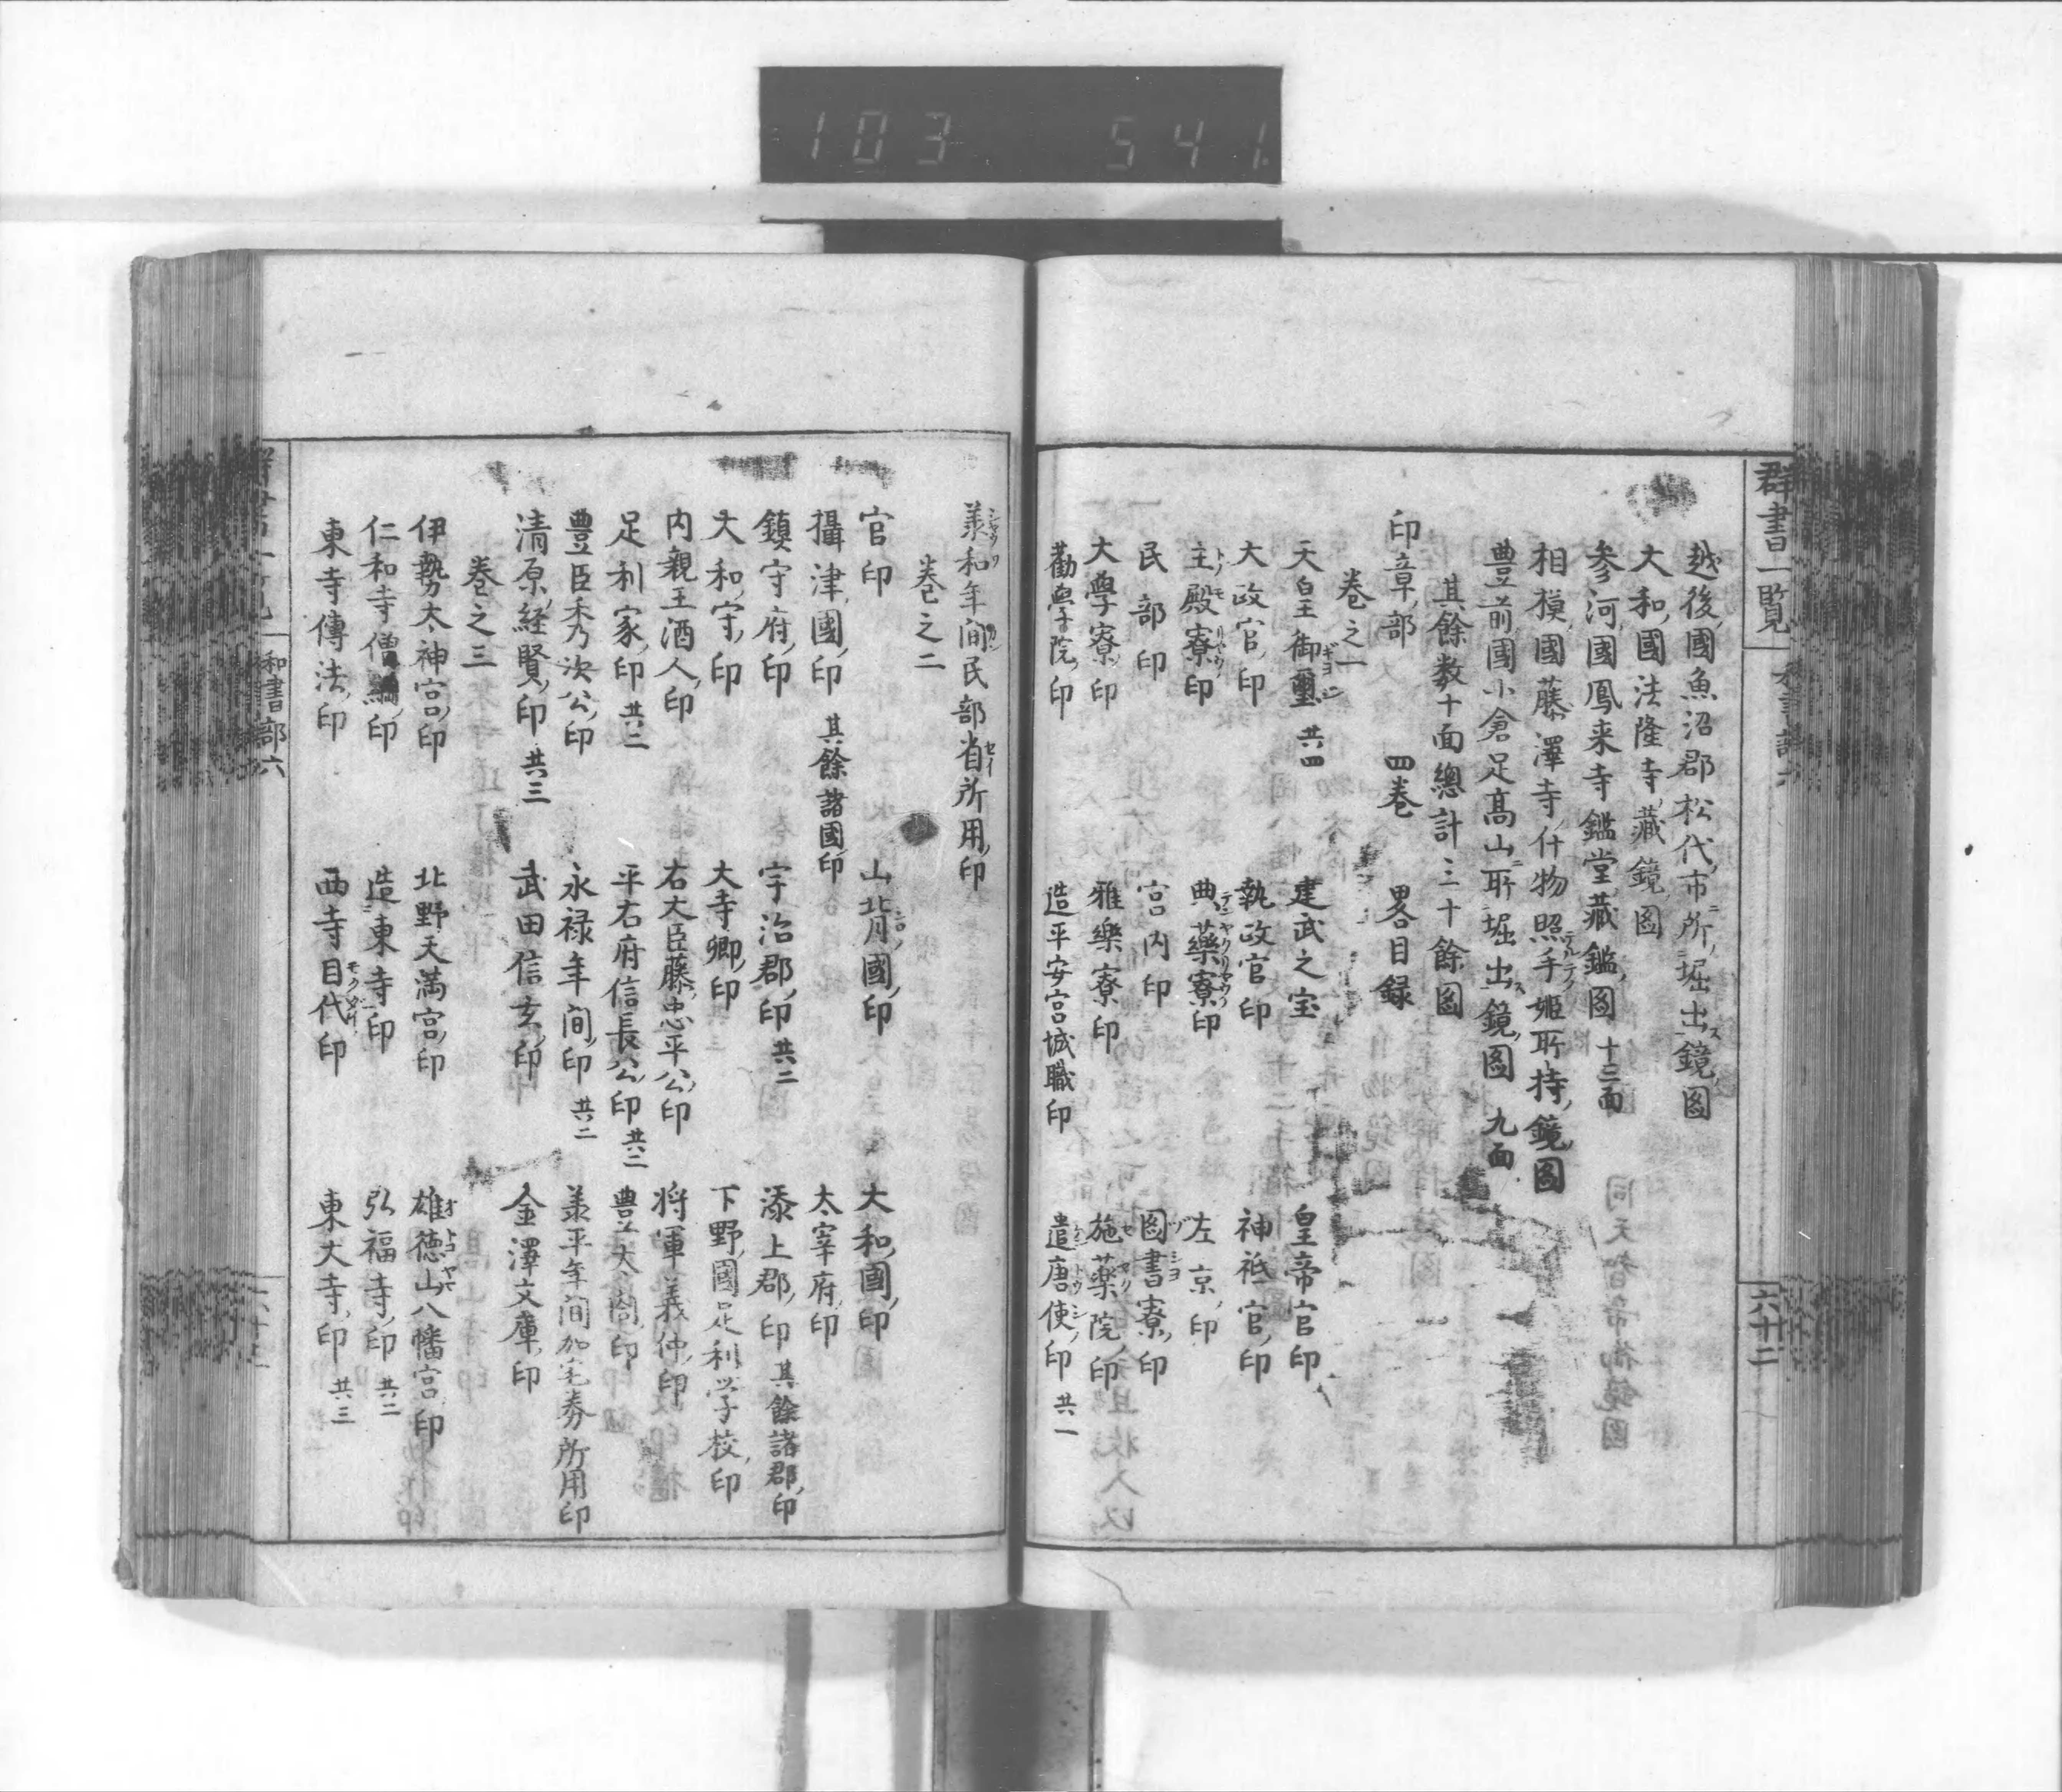 103 541
群書一覧
六十二
越後國魚沼郡松代市所堀出鏡図
大和國法隆寺藏鏡図
参河國鳳来寺鑑堂藏鑑図 十三面
相摸國藤澤寺什物照手姫所持鏡図
豊前國小倉足髙山所堀出鏡図 九面
其餘数十面總計三十餘図
印章部 四巻 畧目録
巻之一
天皇御璽 共四 建武之宝 皇帝官印
大政官印 執政官印 神祇官印
主殿寮印 典藥寮印 左京印
民部印 宮内印 図書寮印
大學寮印 雅樂寮印 施薬院印
勸學院印 造平安宮城職印 遣唐使印 共一
羕和年间民部省所用印
巻之二
官印 山背國印 大和國印
攝津國印 其餘諸國印 太宰府印
鎮守府印 宇治郡印 共二 添上郡印 其餘諸郡印
大和守印 大寺卿印 下野國足利学校印
内親王酒人印 右大臣藤忠平公印 将軍義仲印
足利家印 共二 平右府信長公印 共二 豊太閤印
豊臣秀次公印 永禄年间印 共二 羕平年间加宅券所用印
清原経賢印 共三 武田信玄印 金澤文庫印
巻之三
伊勢太神宮印 北野天満宮印 雄徳山八幡宮印
仁和寺僧綱印 造東寺印 弘福寺印 共二
東寺傳法印 西寺目代印 東大寺印 共三
和書部六